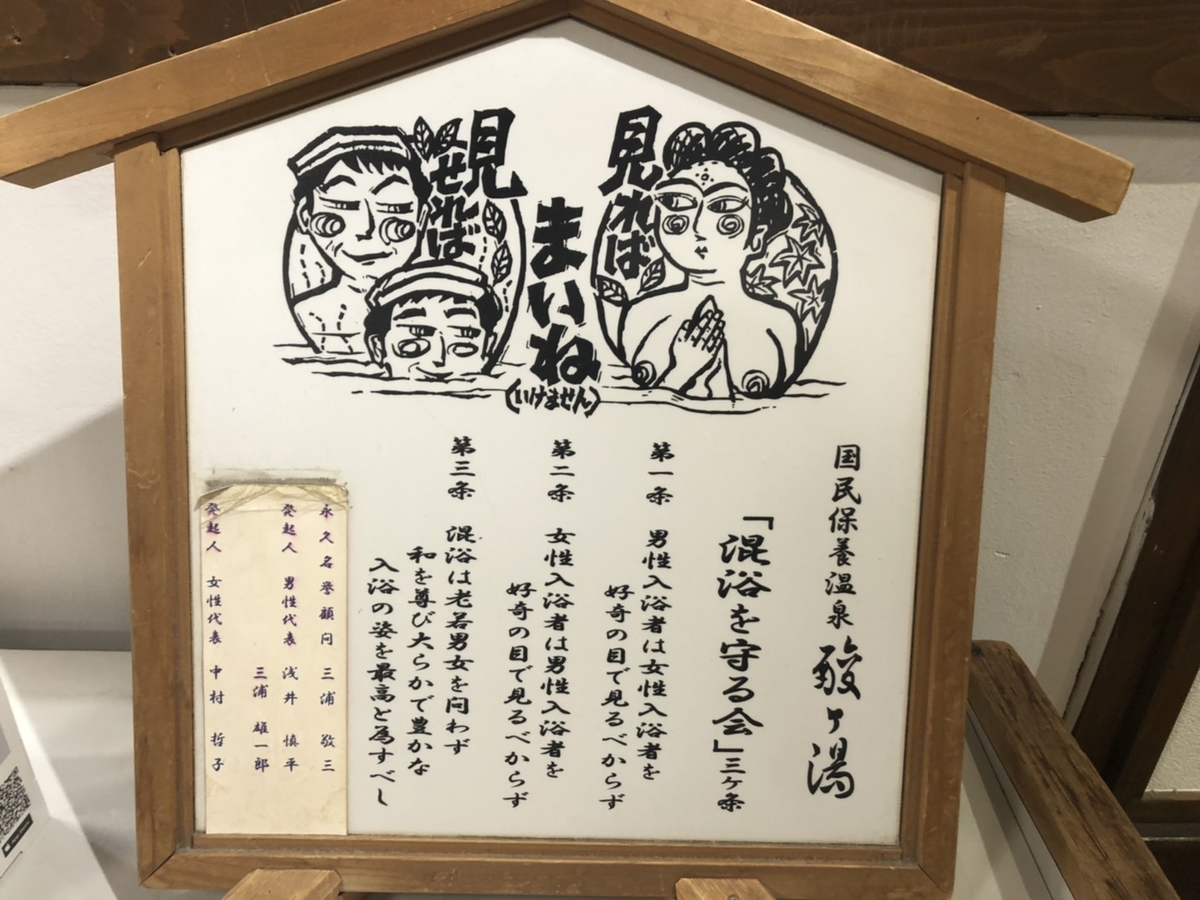 見れば
まいね
(いけません)
見せれば
国民保養温泉 酸ヶ湯
「混浴を守る会」三ヶ条
第一条 男性入浴者は女性入浴者を
好奇の目で見るべからず
第二条 女性入浴者は男性入浴者を
好奇の目で見るべからず
第三条 混浴は老若男女を問わず
和を尊び大らかで豊かな
入浴の姿を最高と為すべし
永久名誉顧問 三浦 敬三
発起人 男性代表 浅井 慎平
三浦 雄一郎
発起人 女性代表 中村 哲子